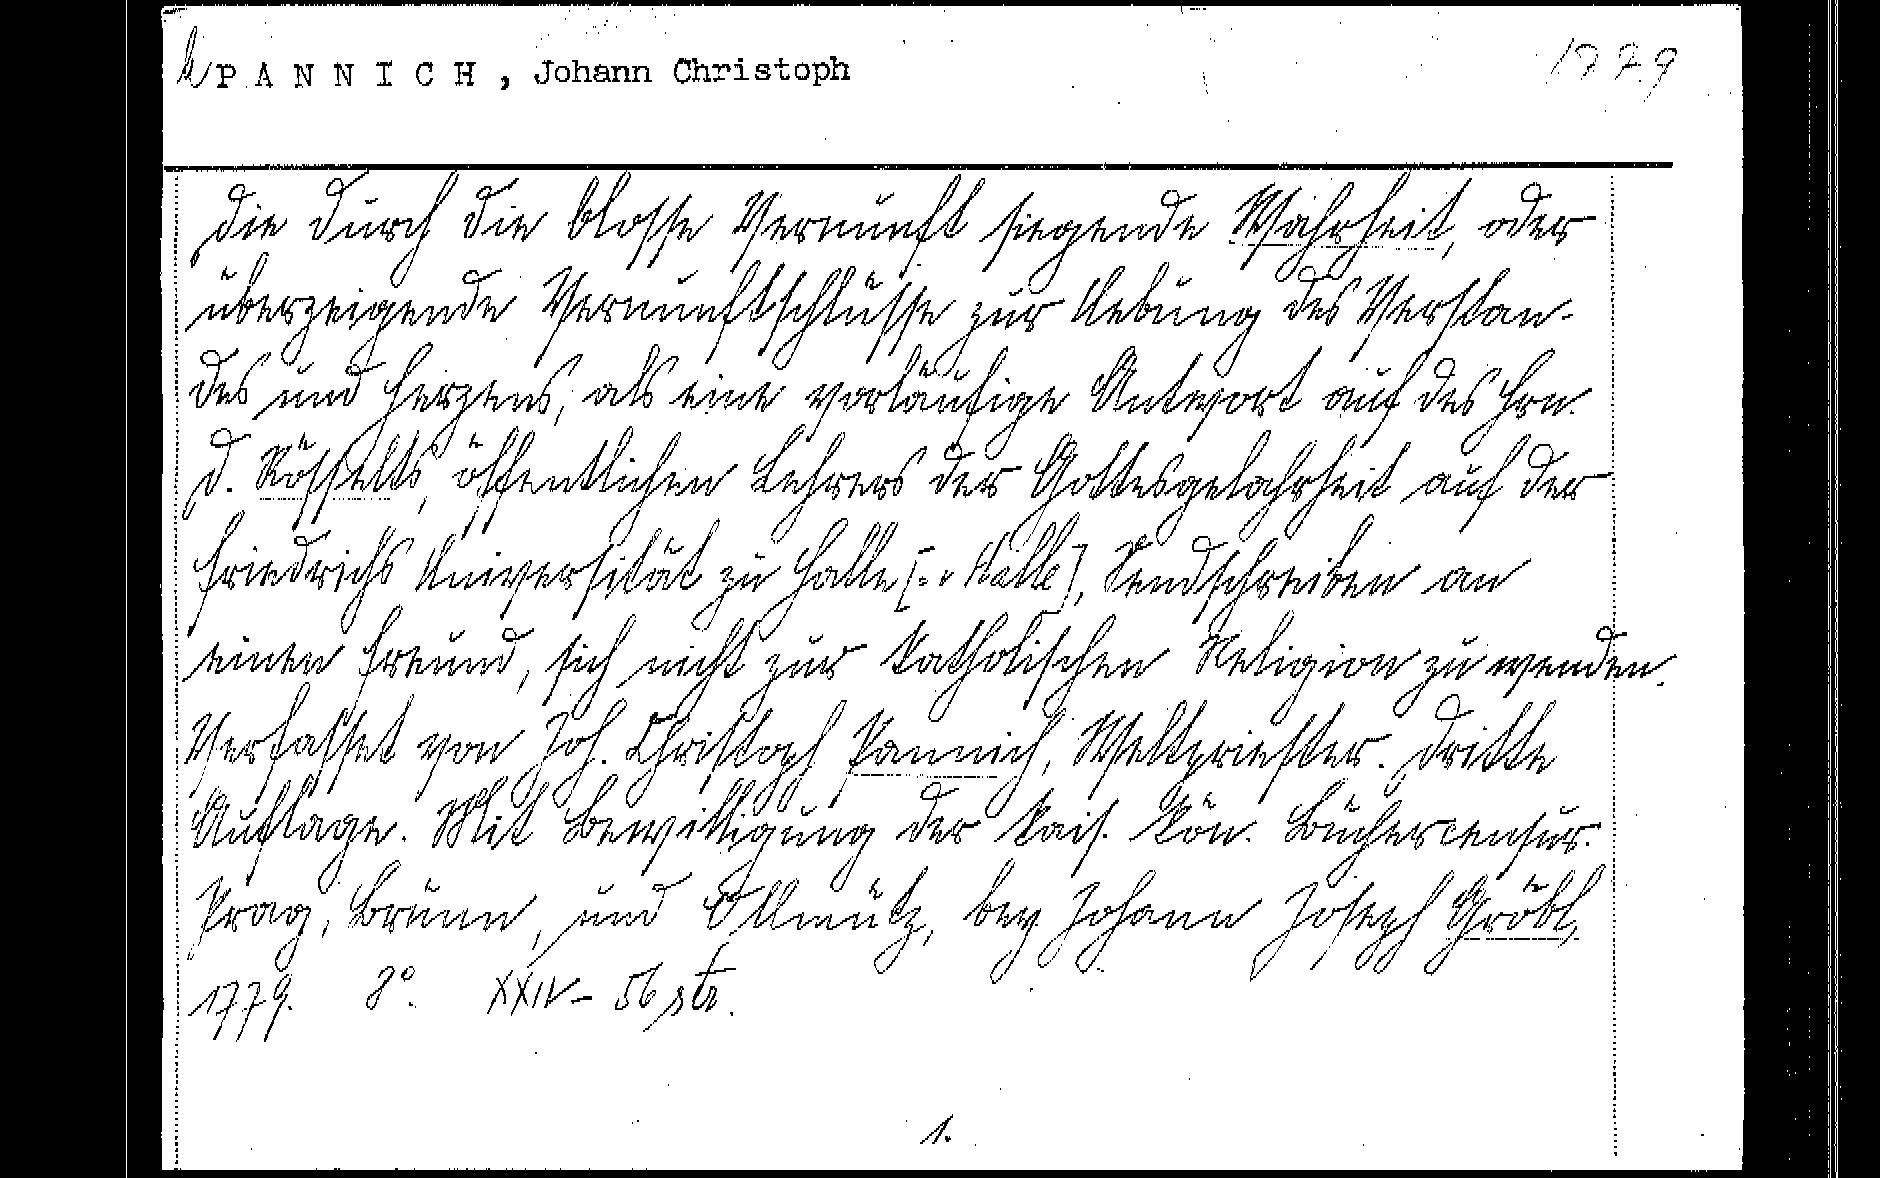 PANNICH, Johann Christoph 1779
Die durch die blosse Vernunft siegende Wahrheit, oder
überzeigende Vernunftschlüsse zur Uebung des Verstan-
des und Herzens, als eine vorläufige Antwort auf des Hrn.
D. Rösselts, öffentlichen Lehrers der Gottesgelahrheit auf der
Friedrichs Universität zu Halle [= v Halle], Sendschreiben an
einen Freund, sich nicht zur katholischen Religion zu wenden.
Verfasset von Joh. Christoph Pannich, Weltpriester. Dritte
Auflage. Mit Bewilligung der kais. kön. Büchercensur.
Prag, Brünn, und Ollmütz, bey Johann Joseph Gröbl,
1779. 8°. XXIV - 56 str.
1.